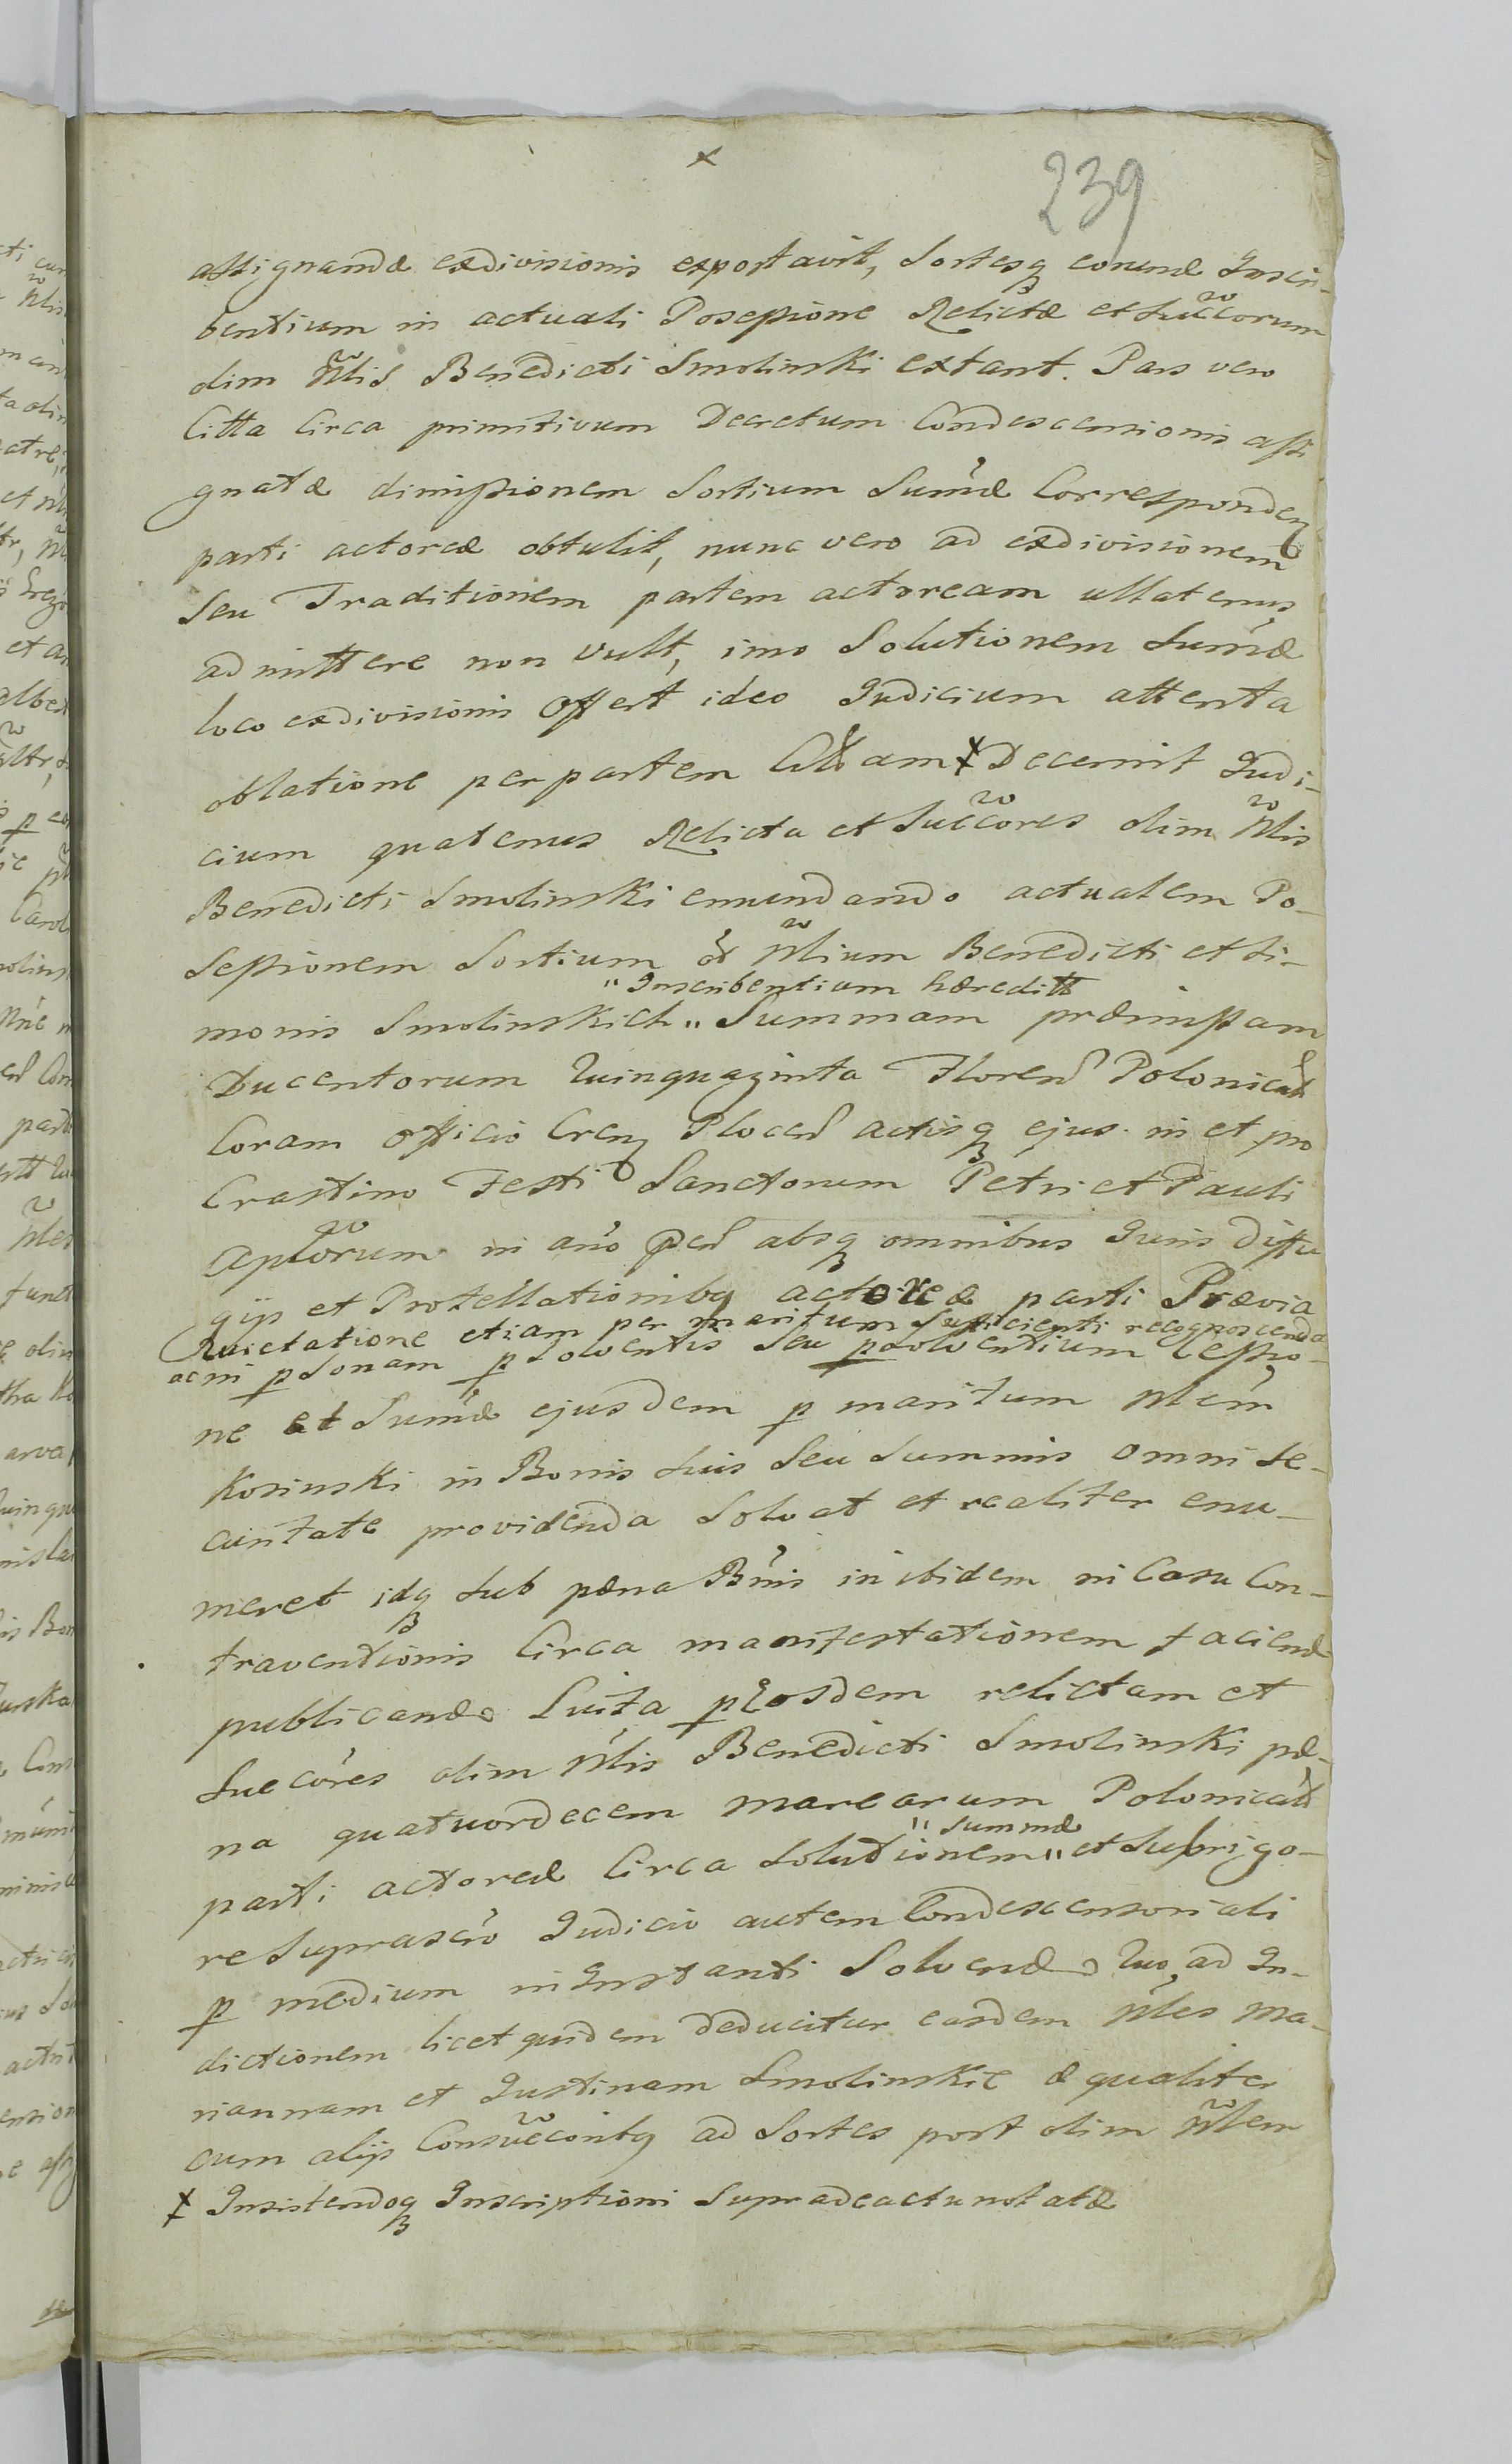 x
239
assignandæ exdivisionis exportavit, Sortesq eorund Inscri-
bentium in actuali Possessione Relictæ et Succorum
olim Nlis Benedicti Smolinski extant. Pars vero
Citta Circa primitivum Decretum Condescensionis assi
gnatæ dimissionem Sortium Sumæ Corresponden
parti actoreæ obtulit, nunc vero ad exdivisionem
Seu Traditionem partem actoream ullatenus
admittere non vult, imo Solutionem Sumæ
loco exdivisionis offert ideo Judicium attenta
oblatione per partem Cittam x Decernit Judi-
cium quatenus Relicta et Succores olim Nlis
Benedicti Smolinski emundando actualem Po-
sessionem Sortium Nlium Benedicti et Si-
" Inscribentium hæreditt
monis Smolinskich " Summam præmissam
Ducentorum Quinquaginta Floren Polonicah
Coram officio Cren Plocen actisq ejus in et pro
Crastino Festi Sanctorum Petri et Pauli
Aplorum in ano pen absq omnibus Juris diffu
gijs et Protellationibq actoreæ parti Prævia
Quietatione etiam per maritum Sufficienti recognoscenda
ac in psonam psolventis Seu psolventium Cessio-
ne et Sumæ ejusdem p maritum Nlem
Kosinski in Bonis Suis Seu Summis omni Se-
curitate providenda Solvat et realiter enu-
meret idq Sub pæna Bnis inibidem in Casu Con-
traventionis Circa manifestationem faciend
publicanda Luita p Eosdem relictam et
Succores olim Nlis Benedicti Smolinski pæ-
na quatuordecem marcarum Polonicah
" Summæ
parti actoreæ Circa Solutionem " et Sub rigo-
re Suprascrio Judicio autem Condescensoriali
p medium in Instanti Solvend Quo ad In-
dictionem licet quidem deducitur easdem Nles Ma-
riannam et Justinam Smolinskie æqualiter
cum alijs Consuccoribq ad Sortes post olim Nlem
x Insistendoq Inscriptioni Supra de actu notatæ